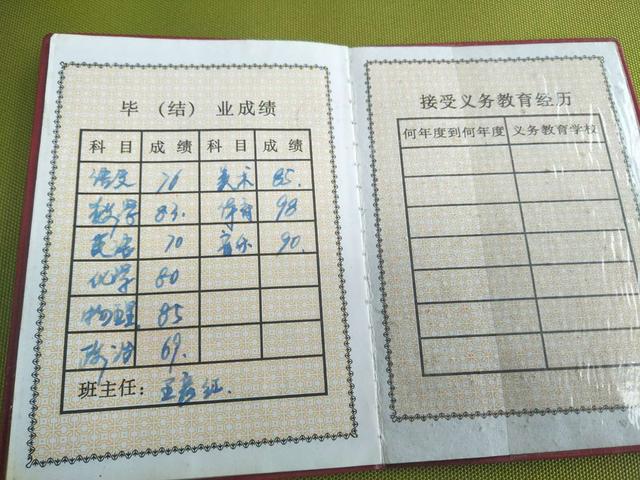 毕（结）业成绩
科目 成绩 科目 成绩
语文 76 美术 85.
数学 83. 体育 98
英语 70 音乐 90.
化学 80
物理 85
政治 69.
班主任：王彦红.
接受义务教育经历
何年度到何年度 义务教育学校